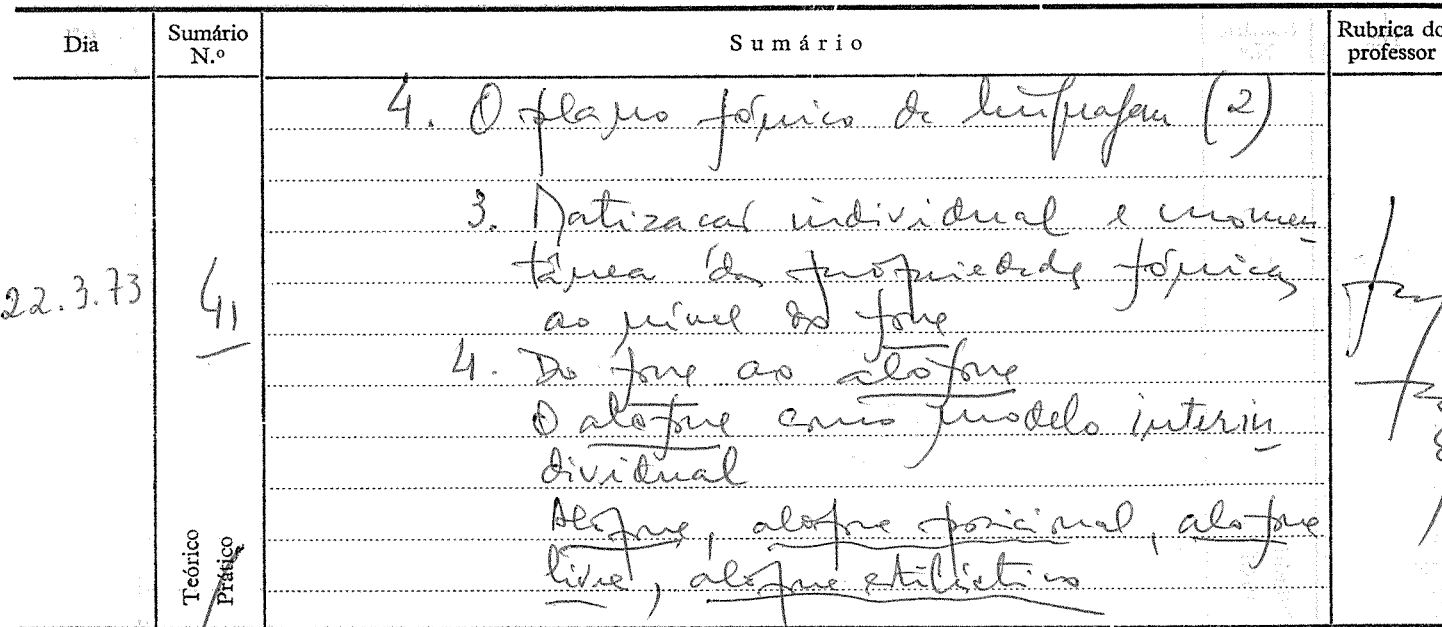 Dia
Sumário
N.º
Sumário
Rubrica do
professor
4. O plano fónico da linguagem (2)
3. Matização individual e momen
tânea das propriedades fónicas
ao nível do fone
22.3.73
41
4. Do fone ao alofone
O alofone como modelo interin
dividual
Alofone, alofone posicional, alofone
livre, alofone estilístico
Teórico
Prático